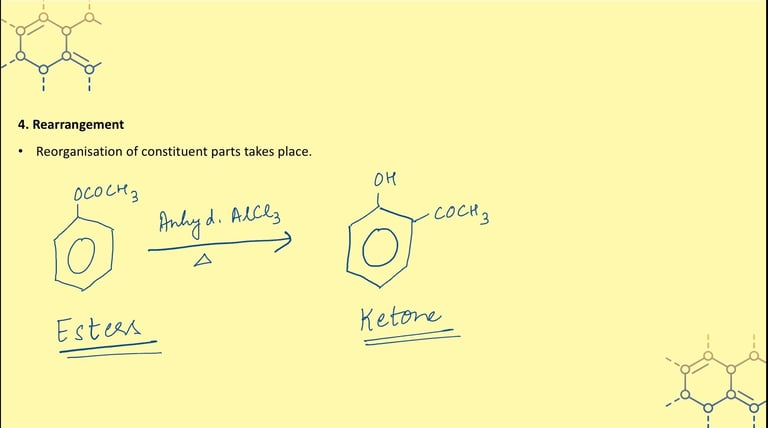 4. Rearrangement
• Reorganisation of constituent parts takes place.
OCOCH3
Anhyd. AlCl3
Δ
OH
COCH3
Esters
Ketone